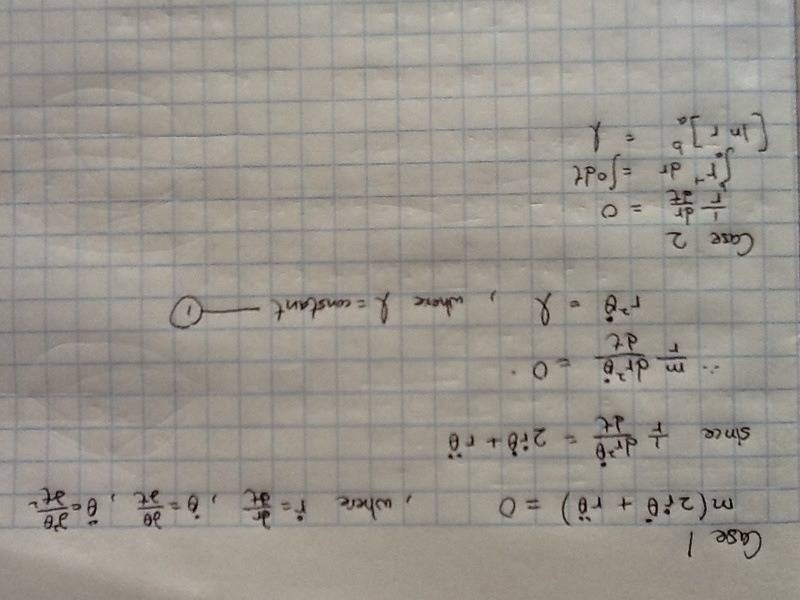 Case 1
m(2ṙθ̇ + rθ̈) = 0 , where ṙ = dr/dt , θ̇ = ∂θ/∂t , θ̈ = ∂²θ/∂t²
since 1/r dr²θ̇/dt = 2ṙθ̇ + rθ̈
∴ m/r dr²θ̇/dt = 0 .
r²θ̇ = l , where l = constant —— ①
Case 2
1/r dr/dt = 0
∫ₐᵇ r⁻¹ dr = ∫0dt
[ln r]ₐᵇ = l